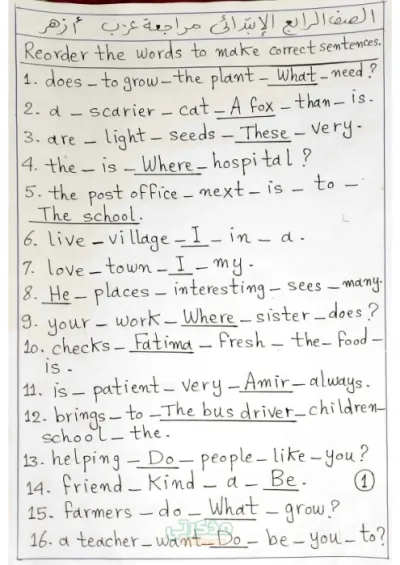 الصف الرابع الإبتدائى مراجعة عزب أزهر
Reorder the words to make correct sentences.
1. does – to grow – the plant – What – need ?
2. a – scarier – cat – A fox – than – is.
3. are – light – seeds – These – very.
4. the – is – Where – hospital ?
5. the post office – next – is – to –
The school.
6. live – village – I – in – a.
7. love – town – I – my.
8. He – places – interesting – sees – many.
9. your – work – Where – sister – does ?
10. checks – Fatima – fresh – the – food –
is.
11. is – patient – very – Amir – always.
12. brings – to – The bus driver – children –
school – the.
13. helping – Do – people – like – you?
14. friend – Kind – a – Be.
1
15. farmers – do – What – grow?
16. a teacher – want – Do – be – you – to?